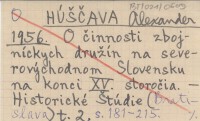 HÚŠČAVA Alexander
1956. O činnosti zboj-
níckych družín na seve-
rovýchodnom Slovensku
na konci XV. storočia. —
Historické Štúdie (Brati-
slava) t. 2. s. 181-215.